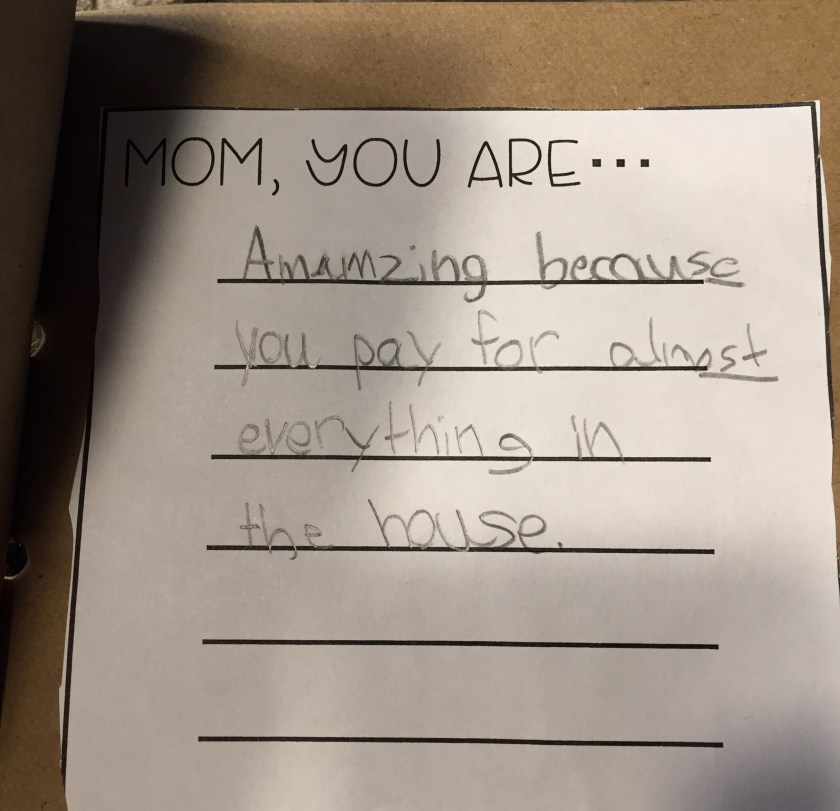 MOM, YOU ARE...
Amamzing because
you pay for almost
everything in
the house.